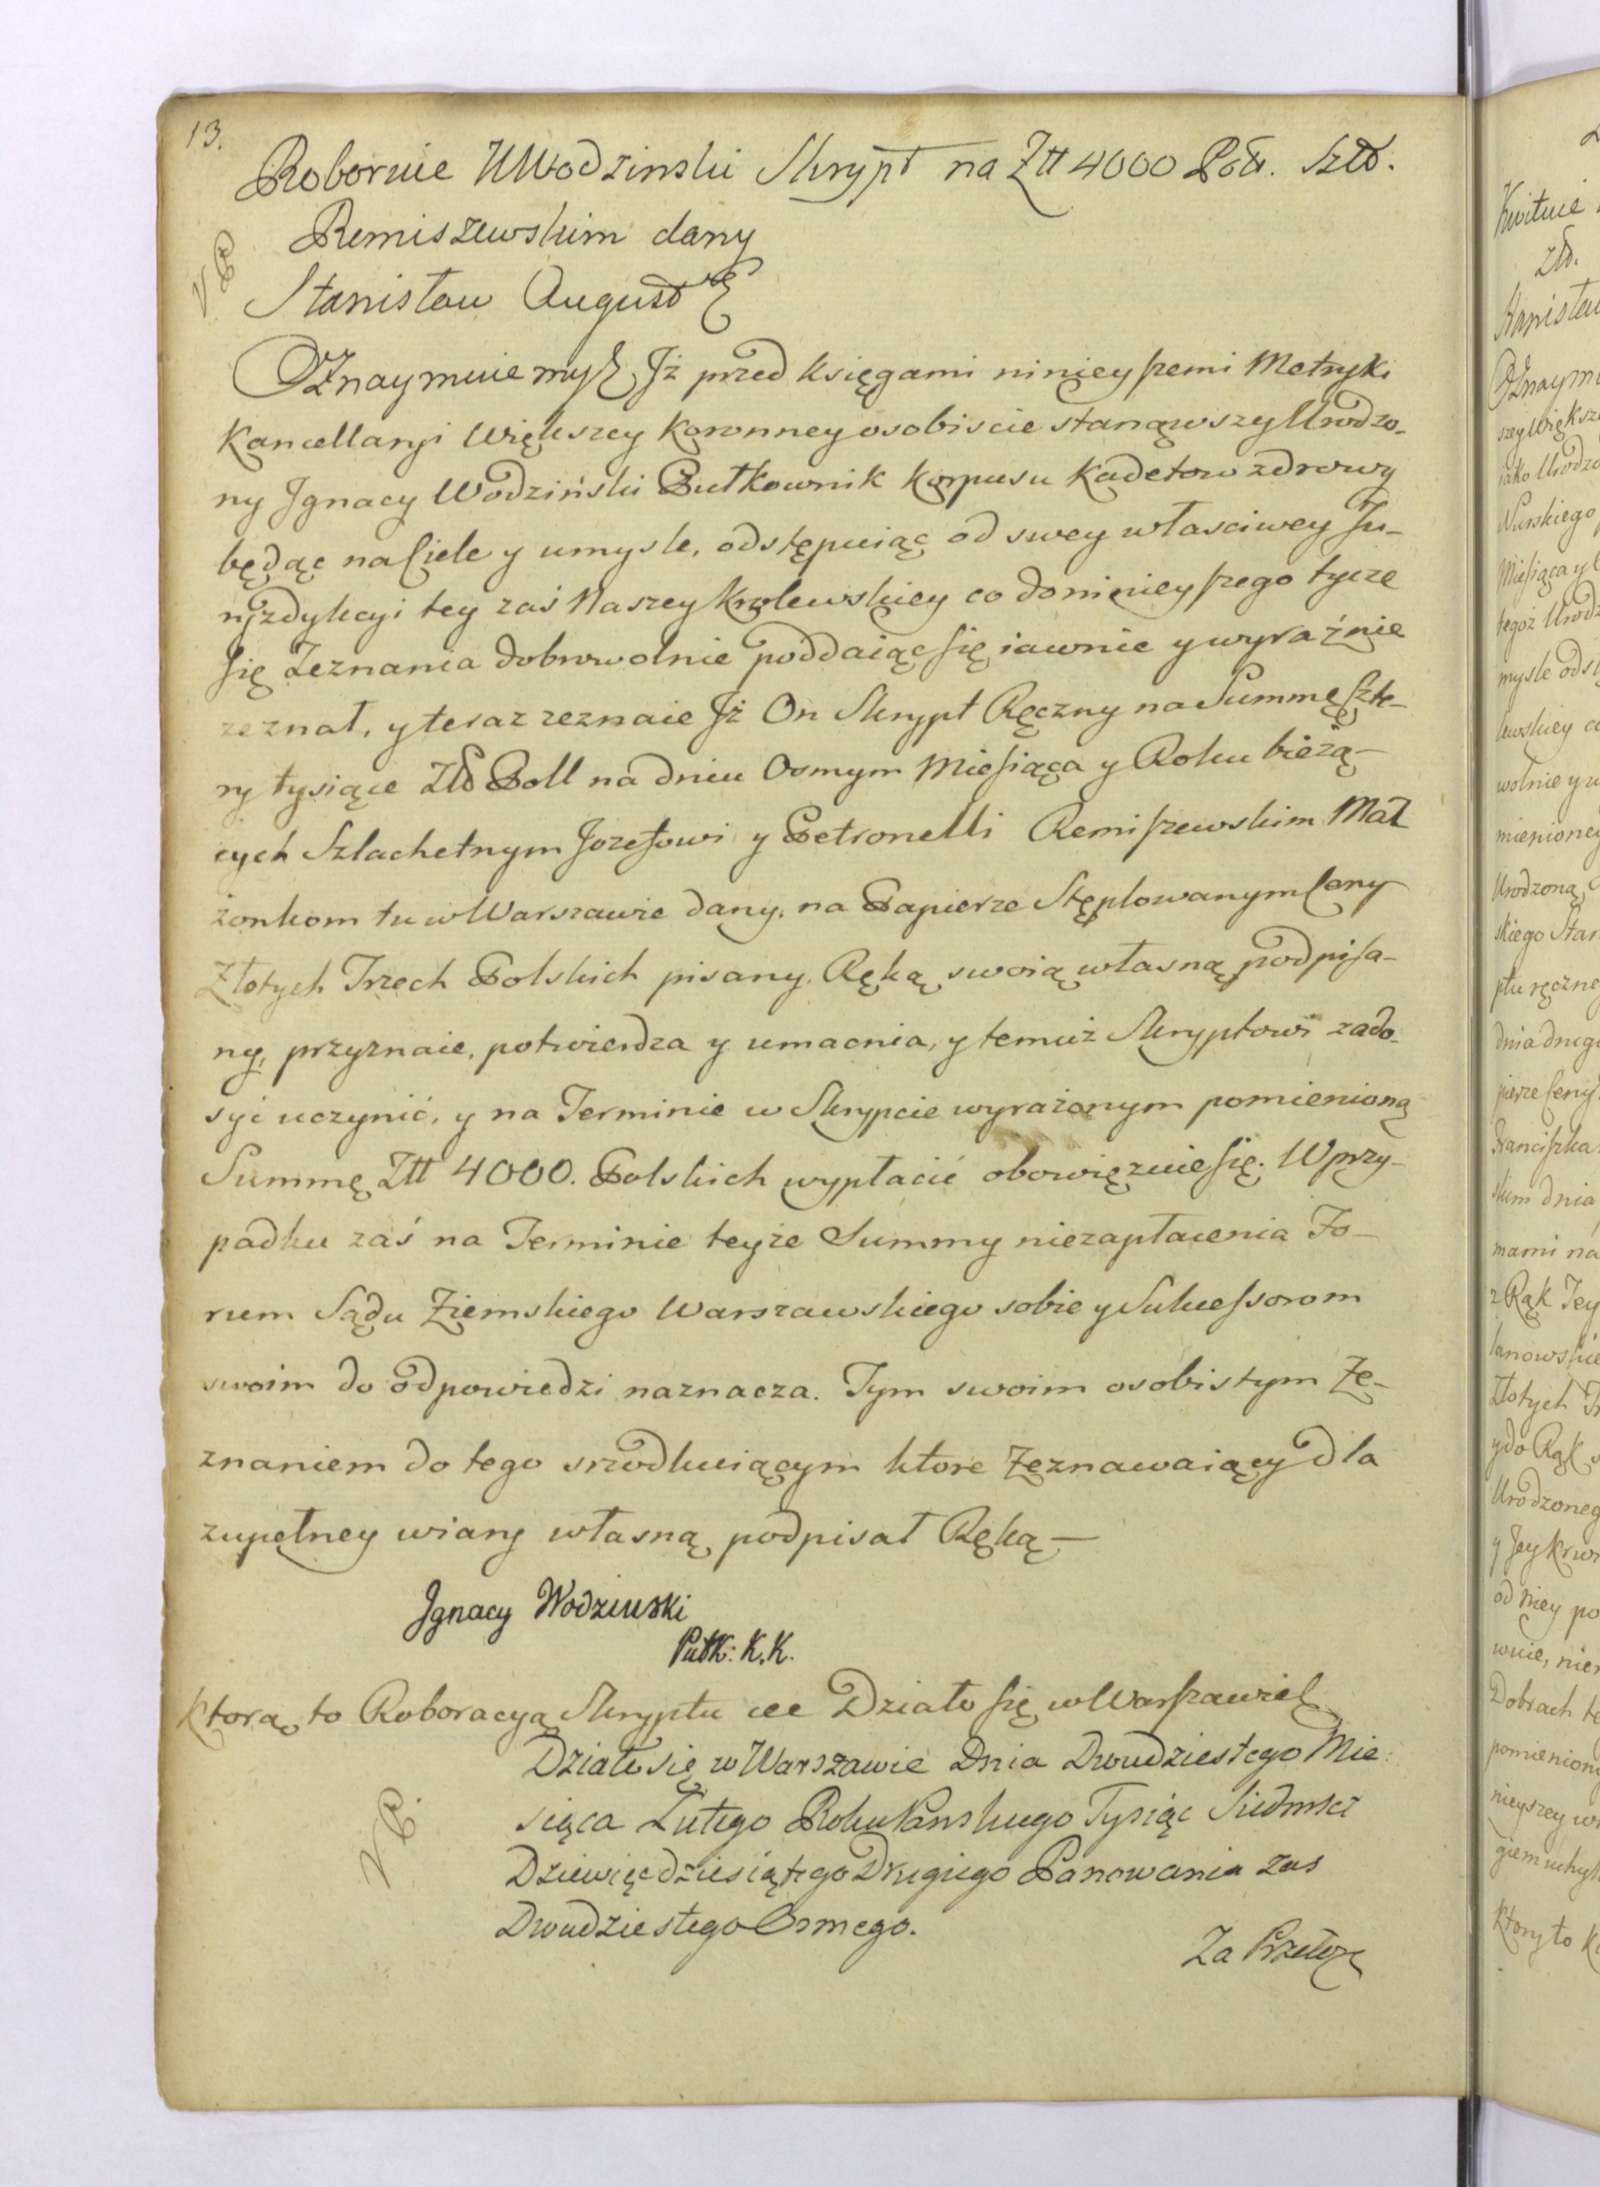 13.
Roboruie UWodzinski Skrypt na Ztt 4000 Poll. Szt.
Remiszewskim dany
VR
Stanisław August
Oznaymuiemy Jż przed księgami ninieyszemi Metryki
Kancellaryi Większey Koronney osobiscie stanąwszy Urodzo-
ny Jgnacy Wodziński Pułkownik Korpusu Kadetow zdrowy
będąc na Ciele y umysle, odstępuiąc od swey własciwey Ju-
ryzdykcyi tey zaś Naszey Krolewskiey co do ninieyszego tycze
się Zeznania dobrowolnie poddaiąc się iawnie y wyraźnie
zeznał, y teraz zeznaie Jż On Skrypt Ręczny na Summę Czte-
ry tysiące Złł Poll na dniu Osmym Miesiąca y Roku bieżą-
cych Szlachetnym Jozefowi y Petronelli Remiszewskim Mał
żonkom tu w Warszawie dany, na Papierze Stęplowanym Ceny
Złotych Trzech Polskich pisany, Ręką swoią własną podpisa-
ny, przyznaie, potwierdza y umacnia, y temuż Skryptowi zado-
syć uczynić, y na Terminie w Skrypcie wyrażonym pomienioną
Summę Ztt 4000. Polskich wypłacić obowięzuie się. W przy-
padku zaś na Terminie teyże Summy niezapłacenia Fo-
rum Sądu Ziemskiego Warszawskiego sobie y Sukcessorom
swoim do odpowiedzi naznacza. Tym swoim osobistym Ze-
znaniem do tego srzodkuiącym ktore Zeznawaiący dla
zupełney wiary własną podpisał Ręką —
Jgnacy Wodzinski
Pułk: K. K.
Ktorą to Roboracyą Skryptu Działo się w Warszawie
Działo się w Warszawie Dnia Dwudziestego Mie:
siąca Lutego Roku Panskiego Tysiąc Siedmset
VR.
Dziewięcdziesiątego Drugiego Panowania zas
Dwudziestego Osmego.
Za Przeło
Kwituie
Zło.
Stanisław
Oznaymu
szey Większe
iako Urodzo
Wurskiego
Miesiąca y
tegoż Urodz
mysle odst
lewskiey co
wolnie y w
mienioney
Urodzoną
skiego Star
ptu ręczne
dnia drug
pierze Ceny
Franciszka
skim dnia
mami na
z Rąk Tey
lanowskie
Złotych Tr
y do Rąk
Urodzoneg
y Jey Krw
od Niey po
wuie, nie
Dobrach te
pomieniony
nieyszey w
giem uchyl
Ktory to K